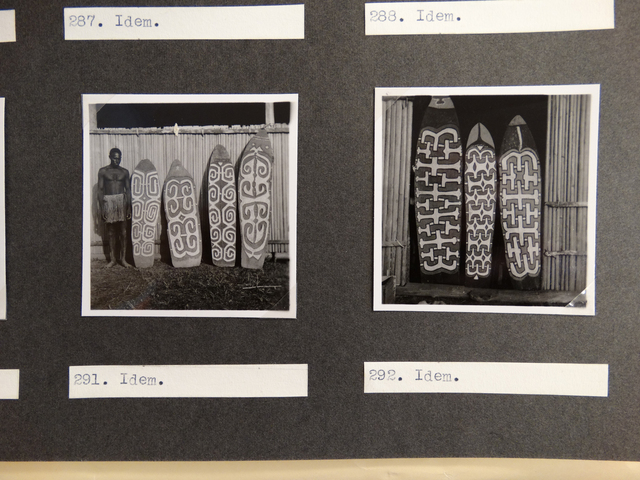 287. Idem.
288. Idem.
291. Idem.
292. Idem.